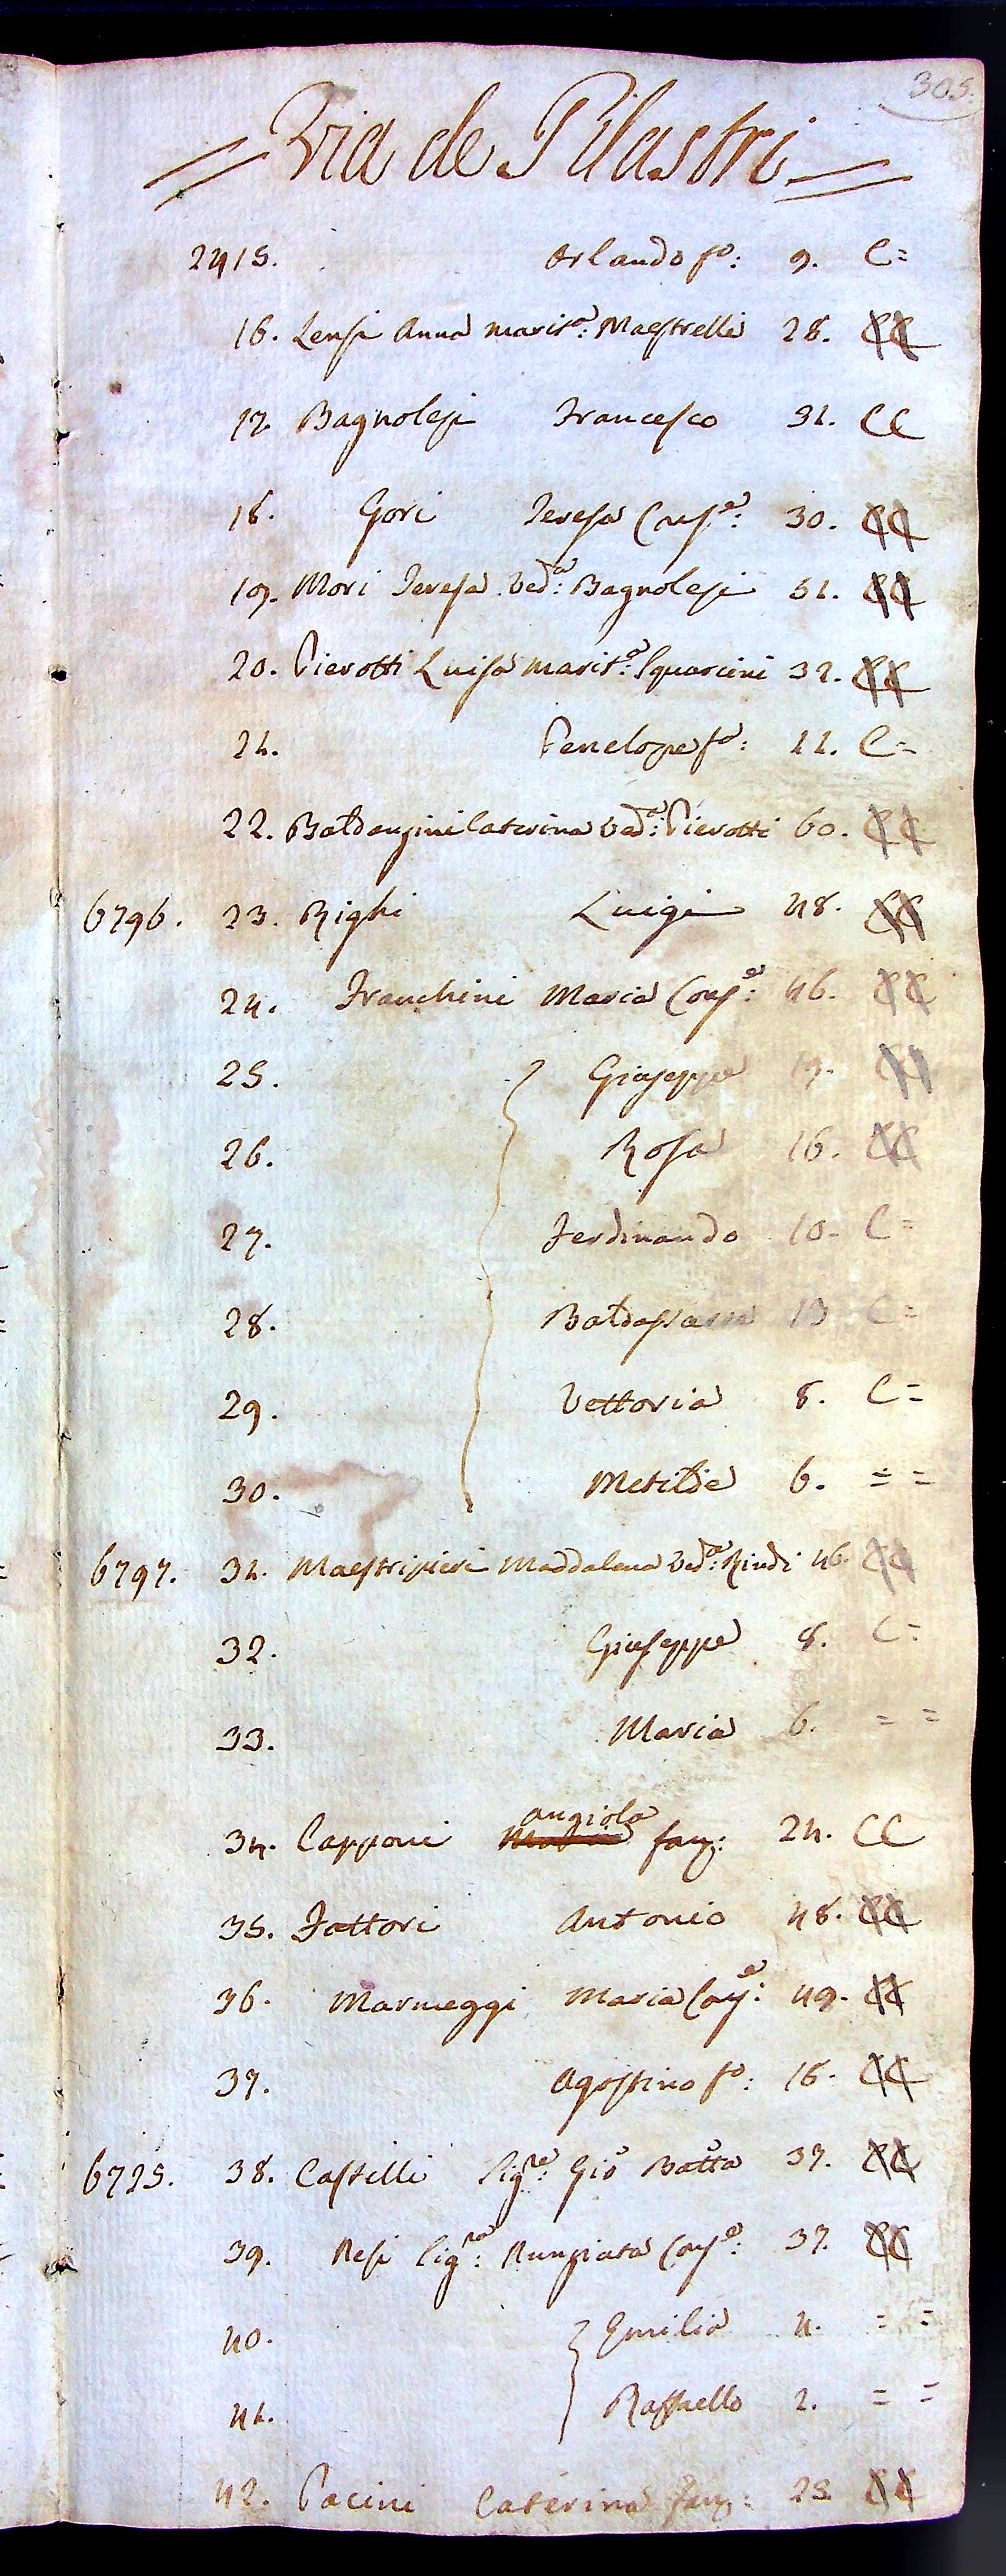 305.
= Via de Pilastri =
2415. Orlando fo: 9. C=
16. Lensi Anna marit.a: Maestrelli 28. CC
17. Bagnolesi Francesco 31. CC
18. Gori Teresa Cons.e: 30. CC
19. Mori Teresa Ved.a: Bagnolesi 51. CC
20. Pierotti Luisa marit.a: Squarcini 32. CC
21. Penelope fa: 11. C=
22. Caterina Ved.a: Pierotti 60. CC
6796. 23. Righi Luigi 48. CC
24. Franchini Maria Cons.e: 46. CC
25. Giuseppe 19. CC
26. Rosa 16. CC
27. Ferdinando 10. C=
28. Baldassarre C=
29. Vettoria 8. C=
30. Metilde 6. = =
6797. 31. Maestripieri Maddalena Ved.a: Rindi 46. CC
32. Giuseppe 8. C=
33. Maria 6. = =
angiola
34. Capponi fan: 24. CC
35. Fattori Antonio 48. CC
36. Marmeggi Maria Con.e: 49. CC
37. Agostino fo: 16. CC
6725. 38. Castelli Sig.re: Gio Batta 37. CC
39. Resi Sig.ra: Nunziata Cons.e: 37. CC
40. Emilia 4. = =
41. Raffaello 2. = =
42. Pacini Caterina fan: 23. CC